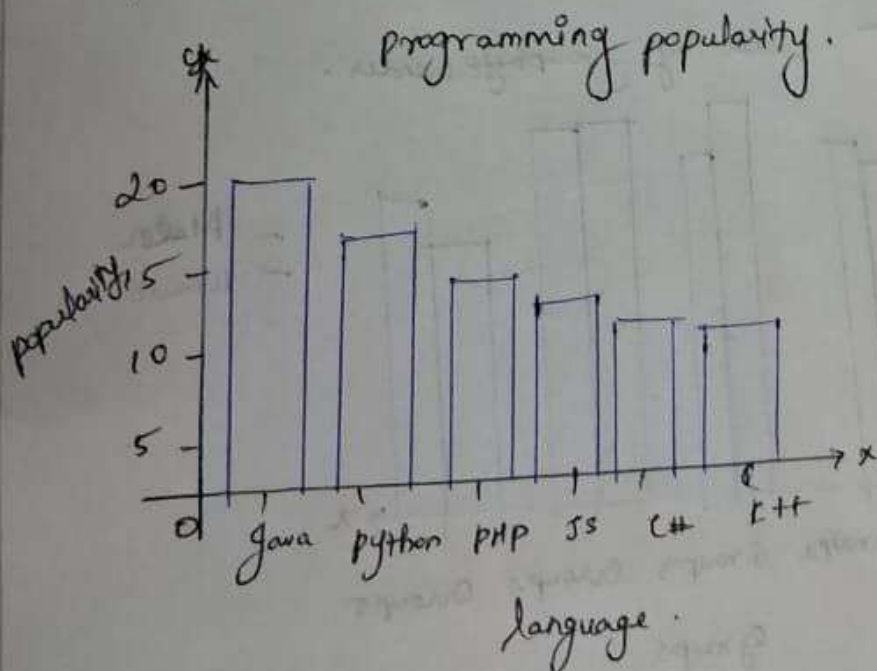 programming popularity.
y
20
popularity
15
10
5
0
Java Python PHP JS C# C++
x
language.